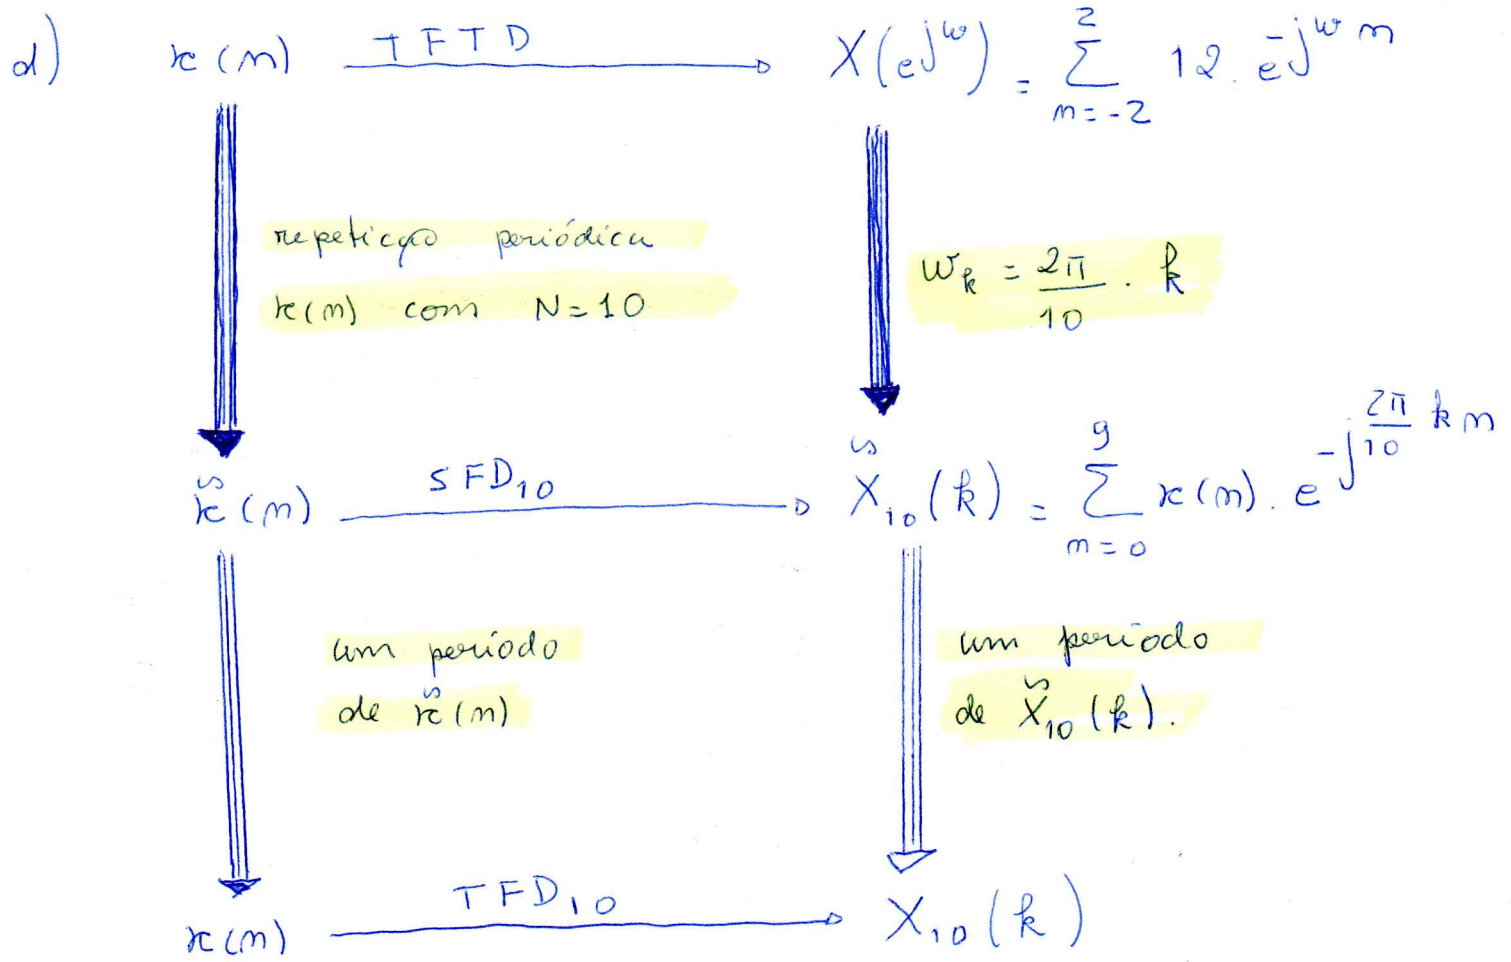 d) x(n) TFTD X(e^{jω}) = \sum_{n=-2}^{2} 12 . e^{-jωn}
repetição periódica
x(n) com N=10
ω_k = \frac{2π}{10} . k
\tilde{x}(n) SFD_{10} \tilde{X}_{10}(k) = \sum_{n=0}^{9} x(n) . e^{-j\frac{2π}{10}kn}
um período
de \tilde{x}(n)
um período
de \tilde{X}_{10}(k).
x(n) TFD_{10} X_{10}(k)